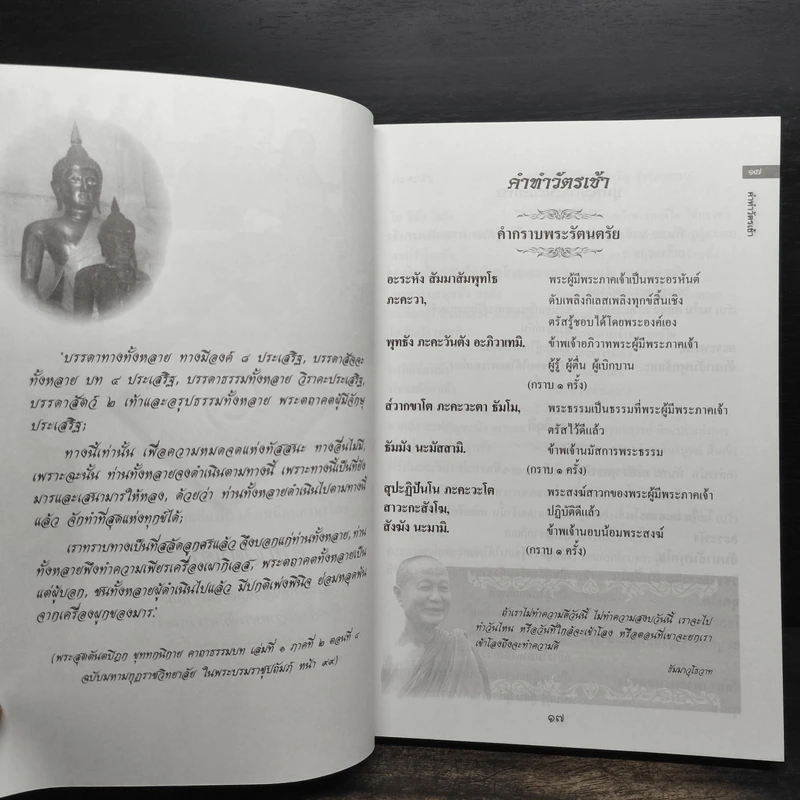 "บรรดาทางทั้งหลาย ทางมีองค์ ๘ ประเสริฐ, บรรดาสัจจะ
ทั้งหลาย บท ๔ ประเสริฐ, บรรดาธรรมทั้งหลาย วิราคะประเสริฐ,
บรรดาสัตว์ ๒ เท้าและอรูปธรรมทั้งหลาย พระตถาคตผู้มีจักษุ
ประเสริฐ;
ทางนี้เท่านั้น เพื่อความหมดจดแห่งทัสสนะ ทางอื่นไม่มี,
เพราะฉะนั้น ท่านทั้งหลายจงดำเนินตามทางนี้ เพราะทางนี้เป็นที่ยัง
มารและเสนามารให้หลง, ด้วยว่า ท่านทั้งหลายดำเนินไปตามทางนี้
แล้ว จักทำที่สุดแห่งทุกข์ได้;
เราทราบทางเป็นที่สลัดลูกศรแล้ว จึงบอกแก่ท่านทั้งหลาย, ท่าน
ทั้งหลายพึงทำความเพียรเครื่องเผากิเลส, พระตถาคตทั้งหลายเป็น
แต่ผู้บอก, ชนทั้งหลายผู้ดำเนินไปแล้ว มีปกติเพ่งพินิจ ย่อมหลุดพ้น
จากเครื่องผูกของมาร."
(พระสุตตันตปิฎก ขุททกนิกาย คาถาธรรมบท เล่มที่ ๑ ภาคที่ ๒ ตอนที่ ๔
ฉบับมหามกุฏราชวิทยาลัย ในพระบรมราชูปถัมภ์ หน้า ๙๙)
๑๗
คำทำวัตรเช้า
คำทำวัตรเช้า
คำกราบพระรัตนตรัย
อะระหัง สัมมาสัมพุทโธ พระผู้มีพระภาคเจ้าเป็นพระอรหันต์
ภะคะวา, ดับเพลิงกิเลสเพลิงทุกข์สิ้นเชิง
ตรัสรู้ชอบได้โดยพระองค์เอง
พุทธัง ภะคะวันตัง อะภิวาเทมิ. ข้าพเจ้าอภิวาทพระผู้มีพระภาคเจ้า
ผู้รู้ ผู้ตื่น ผู้เบิกบาน
(กราบ ๑ ครั้ง)
ส๎วากขาโต ภะคะวะตา ธัมโม, พระธรรมเป็นธรรมที่พระผู้มีพระภาคเจ้า
ตรัสไว้ดีแล้ว
ธัมมัง นะมัสสามิ. ข้าพเจ้านมัสการพระธรรม
(กราบ ๑ ครั้ง)
สุปะฏิปันโน ภะคะวะโต พระสงฆ์สาวกของพระผู้มีพระภาคเจ้า
สาวะกะสังโฆ, ปฏิบัติดีแล้ว
สังฆัง นะมามิ. ข้าพเจ้านอบน้อมพระสงฆ์
(กราบ ๑ ครั้ง)
ถ้าเราไม่ทำความดีวันนี้ ไม่ทำความสงบวันนี้ เราจะไป
ทำวันไหน หรือวันที่ใกล้จะเข้าโลง หรือตอนที่เขาจะยกเรา
เข้าโลงถึงจะทำความดี
ธัมมาวุโธวาท
๑๗